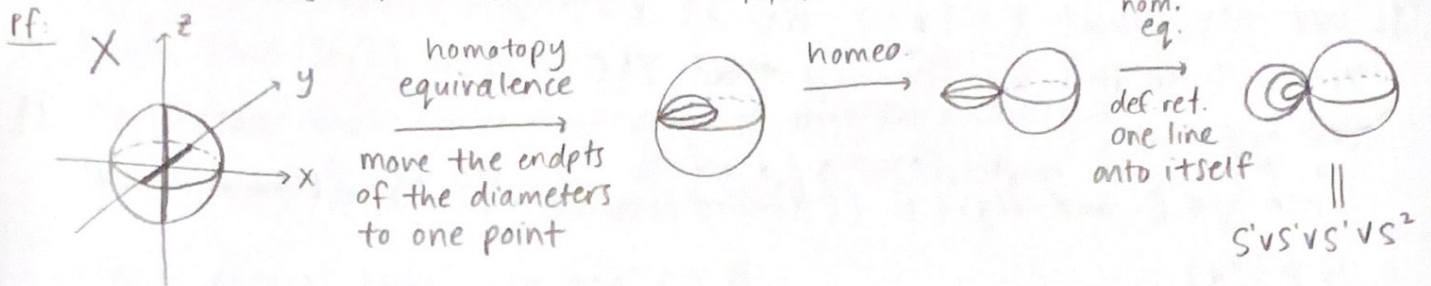 Pf:
X
z
y
x
homotopy
equivalence
move the endpts
of the diameters
to one point
homeo.
hom.
eq.
def. ret.
one line
onto itself
||
S¹∨S¹∨S¹∨S²